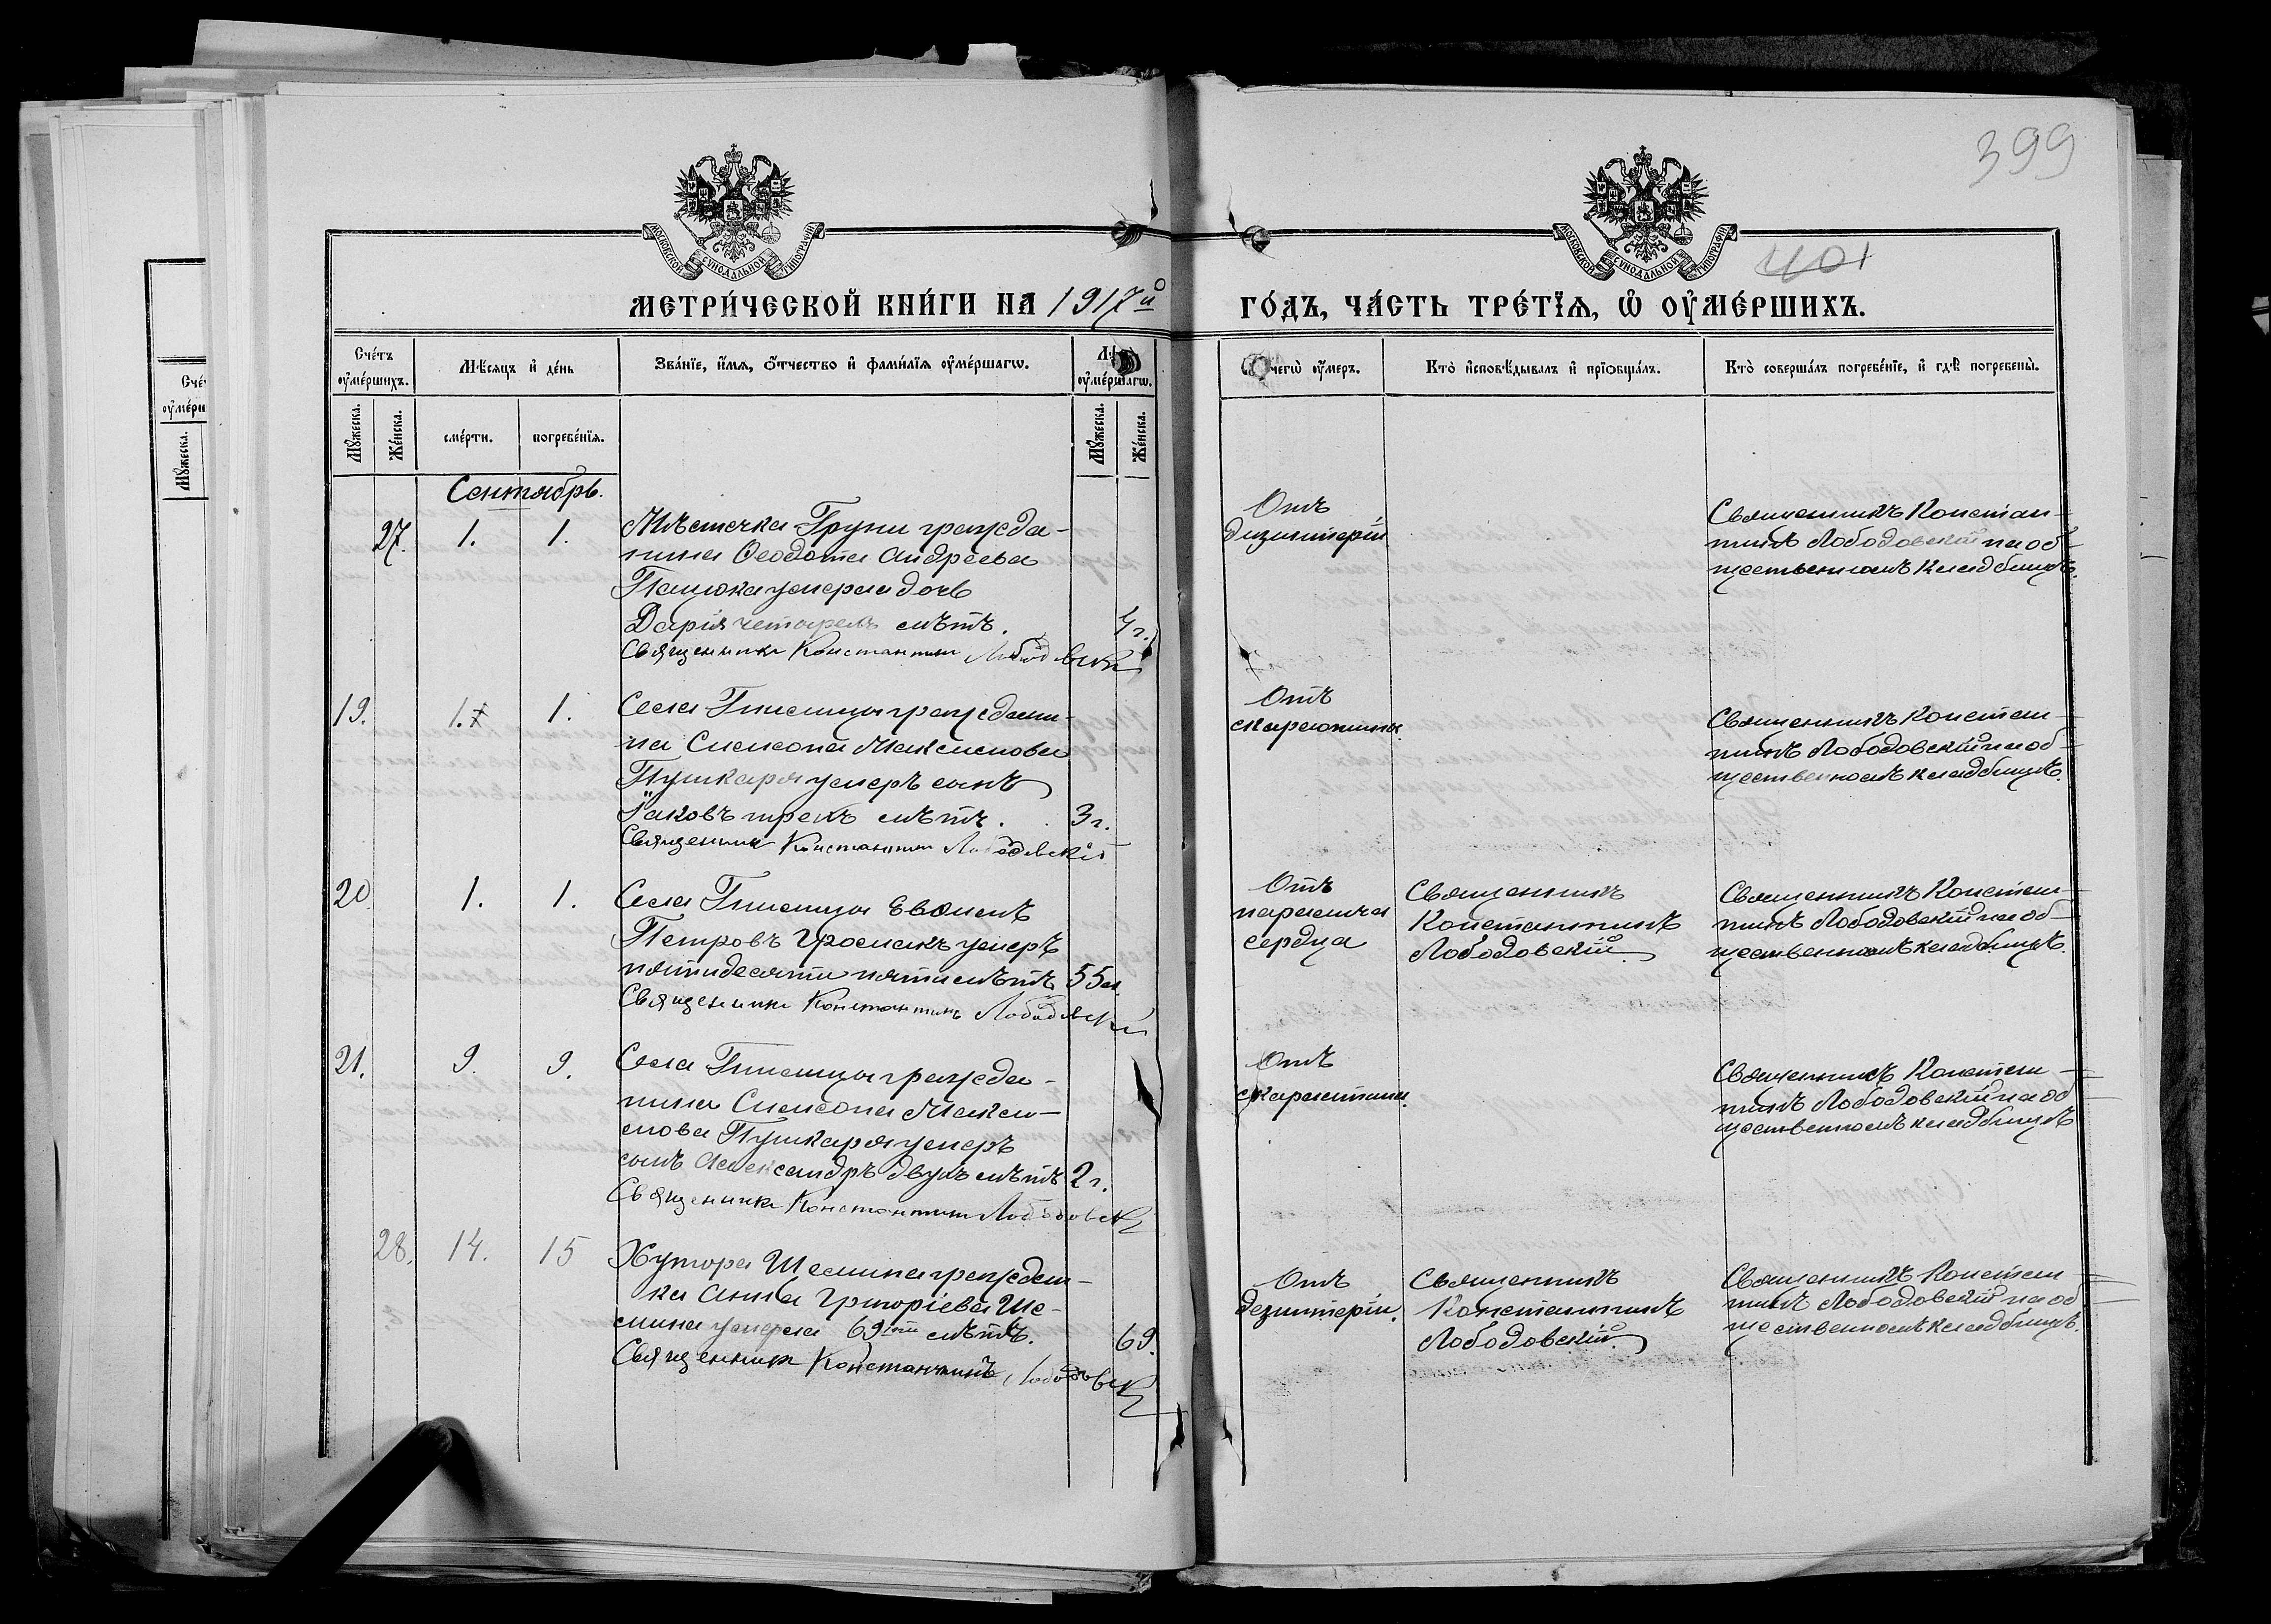 399
401
МОСКОВСКОЙ СѴНОДАЛЬНОЙ ТИПОГРАФІИ
МОСКОВСКОЙ СѴНОДАЛЬНОЙ ТИПОГРАФІИ
МЕТРИ́ЧЕСКОЙ КНИ́ГИ НА 1917й
ГО́ДЪ, ЧА́СТЬ ТРЕ́ТЇѦ, Ѡ҆ ОУ҆МЕ́РШИХЪ.
Сче́тъ оу҆ме́ршихъ.
Мѣ́сяцъ и҆ де́нь
Зва́нїе, и҆́мѧ, ѻ҆́тчество и҆ фами́лїѧ оу҆ме́ршагѡ.
оу҆ме́ршагѡ.
чегѡ̀ оу҆́меръ.
Кто̀ и҆сповѣ́дывалъ и҆ прїѻбща́лъ.
Кто̀ соверша́лъ погребе́нїе, и҆ гдѣ̀ погребены̀.
Мꙋ́жеска.
Же́нска.
сме́рти.
погребе́нїѧ.
Мꙋ́жеска.
Же́нска.
Сентябрь.
27. 1. 1.
Мѣстечка Груни гражда-
нина Ѳеодота Андреева
Пацюка умерла дочь
Дарія четырехъ лѣтъ. 4 г.
Священникъ Константинъ Лободовскій
Отъ
дизинтеріи
Священникъ Констан-
тинъ Лободовскій на об-
щественномъ кладбищѣ.
19. 1. 1.
Села Гнилицы граждани-
на Симеона Максимова
Пушкаря умеръ сынъ
Іаковъ трехъ лѣтъ. 3 г.
Священникъ Константинъ Лободовскій
Отъ
скарлатины.
Священникъ Констан-
тинъ Лободовскій на об-
щественномъ кладбищѣ.
20. 1. 1.
Села Гнилицы
Петровъ умеръ
пятидесяти пяти лѣтъ 55 л.
Священникъ Константинъ Лободовскій
Отъ
паралича
сердца
Священникъ
Константинъ
Лободовскій
Священникъ Констан-
тинъ Лободовскій на об-
щественномъ кладбищѣ.
21. 9. 9.
Села Гнилицы гражда-
нина Симеона Макси-
мова Пушкаря умеръ
сынъ Александръ двухъ лѣтъ 2 г.
Священникъ Константинъ Лободовскій
Отъ
скарлатины.
Священникъ Констан-
тинъ Лободовскій на об
щественномъ кладбищѣ
28. 14. 15
Хутора Шемина граждан-
ка Анна Григоріева Ше-
мина умерла 69ти лѣтъ. 69.
Священникъ Константинъ Лободовскій
Отъ
дезинтеріи.
Священникъ
Константинъ
Лободовскій.
Священникъ Констан
тинъ Лободовскій на об
щественномъ кладбищѣ.